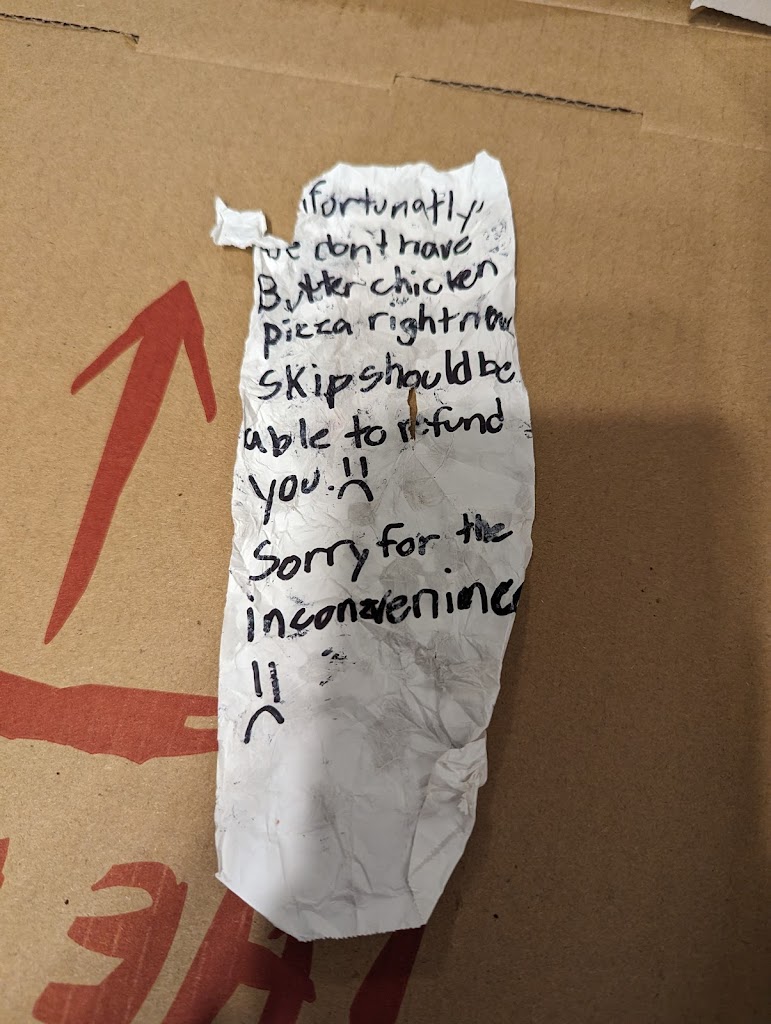 nfortunatly
we don't have
Butter chicken
pizza right now
skip should be
able to refund
you. :(
Sorry for the
inconvenince
:(
HE